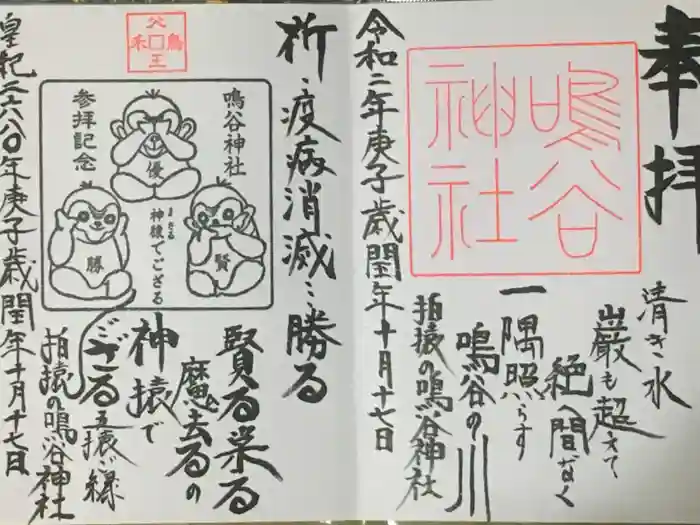 奉拝
清き水
巌も超えて
絶へ間なく
一隅照らす
鳴谷の川
鳴谷
神社
拍猿の鳴谷神社
令和二年庚子歳閏年十月十七日
祈疫病消滅勝る
賢る楽る
魔去るの
神猿で
ござる
拍猿の鳴谷神社
皇紀二六八〇年庚子歳閏年十月十七日
鳴谷神社
参拝記念
優
勝
賢
まさる
神猿でござる